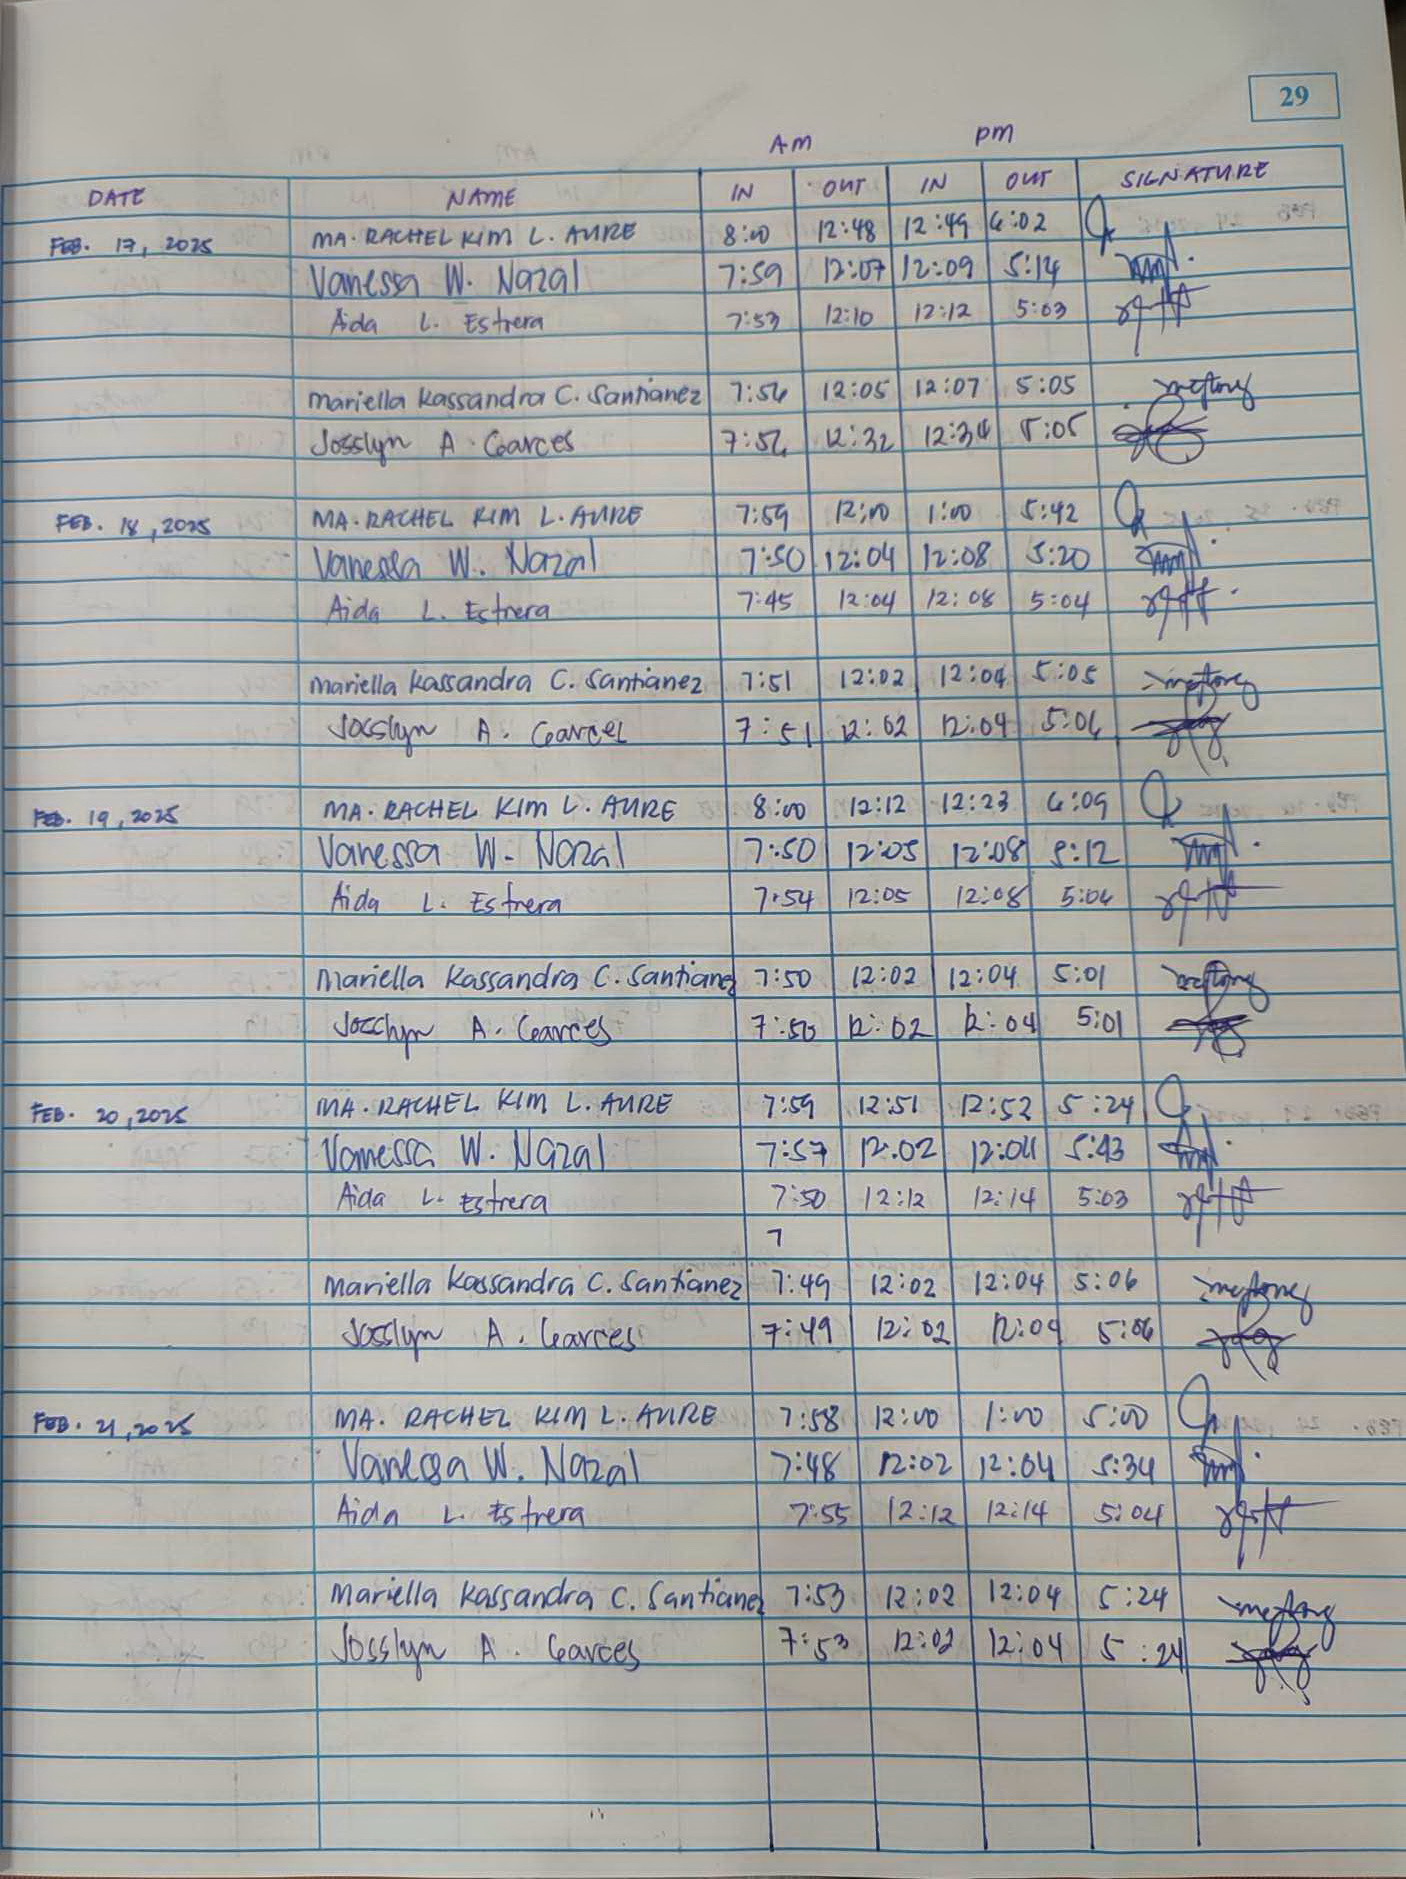 29
AM PM
DATE NAME IN OUT IN OUT SIGNATURE
FEB. 17, 2025 MA. RACHEL KIM L. AURE 8:00 12:48 12:49 6:02
Vanessa W. Nazal 7:59 12:07 12:09 5:14
Aida L. Estrera 7:53 12:10 12:12 5:03
Mariella Kassandra C. Santianez 7:56 12:05 12:07 5:05
Josslyn A. Garces 7:56 12:32 12:34 5:05
FEB. 18, 2025 MA. RACHEL KIM L. AURE 7:59 12:00 1:00 5:42
Vanessa W. Nazal 7:50 12:04 12:08 5:20
Aida L. Estrera 7:45 12:04 12:08 5:04
Mariella Kassandra C. Santianez 7:51 12:02 12:04 5:05
Josslyn A. Garces 7:51 12:02 12:04 5:06
FEB. 19, 2025 MA. RACHEL KIM L. AURE 8:00 12:12 12:23 6:09
Vanessa W. Nazal 7:50 12:05 12:08 5:12
Aida L. Estrera 7:54 12:05 12:08 5:06
Mariella Kassandra C. Santianez 7:50 12:02 12:04 5:01
Josslyn A. Garces 7:50 12:02 12:04 5:01
FEB. 20, 2025 MA. RACHEL KIM L. AURE 7:59 12:51 12:52 5:24
Vanessa W. Nazal 7:57 12:02 12:04 5:43
Aida L. Estrera 7:50 12:12 12:14 5:03
7
Mariella Kassandra C. Santianez 7:49 12:02 12:04 5:06
Josslyn A. Garces 7:49 12:02 12:04 5:06
FEB. 21, 2025 MA. RACHEL KIM L. AURE 7:58 12:00 1:00 5:00
Vanessa W. Nazal 7:48 12:02 12:04 5:34
Aida L. Estrera 7:55 12:12 12:14 5:04
Mariella Kassandra C. Santianez 7:53 12:02 12:04 5:24
Josslyn A. Garces 7:53 12:02 12:04 5:24